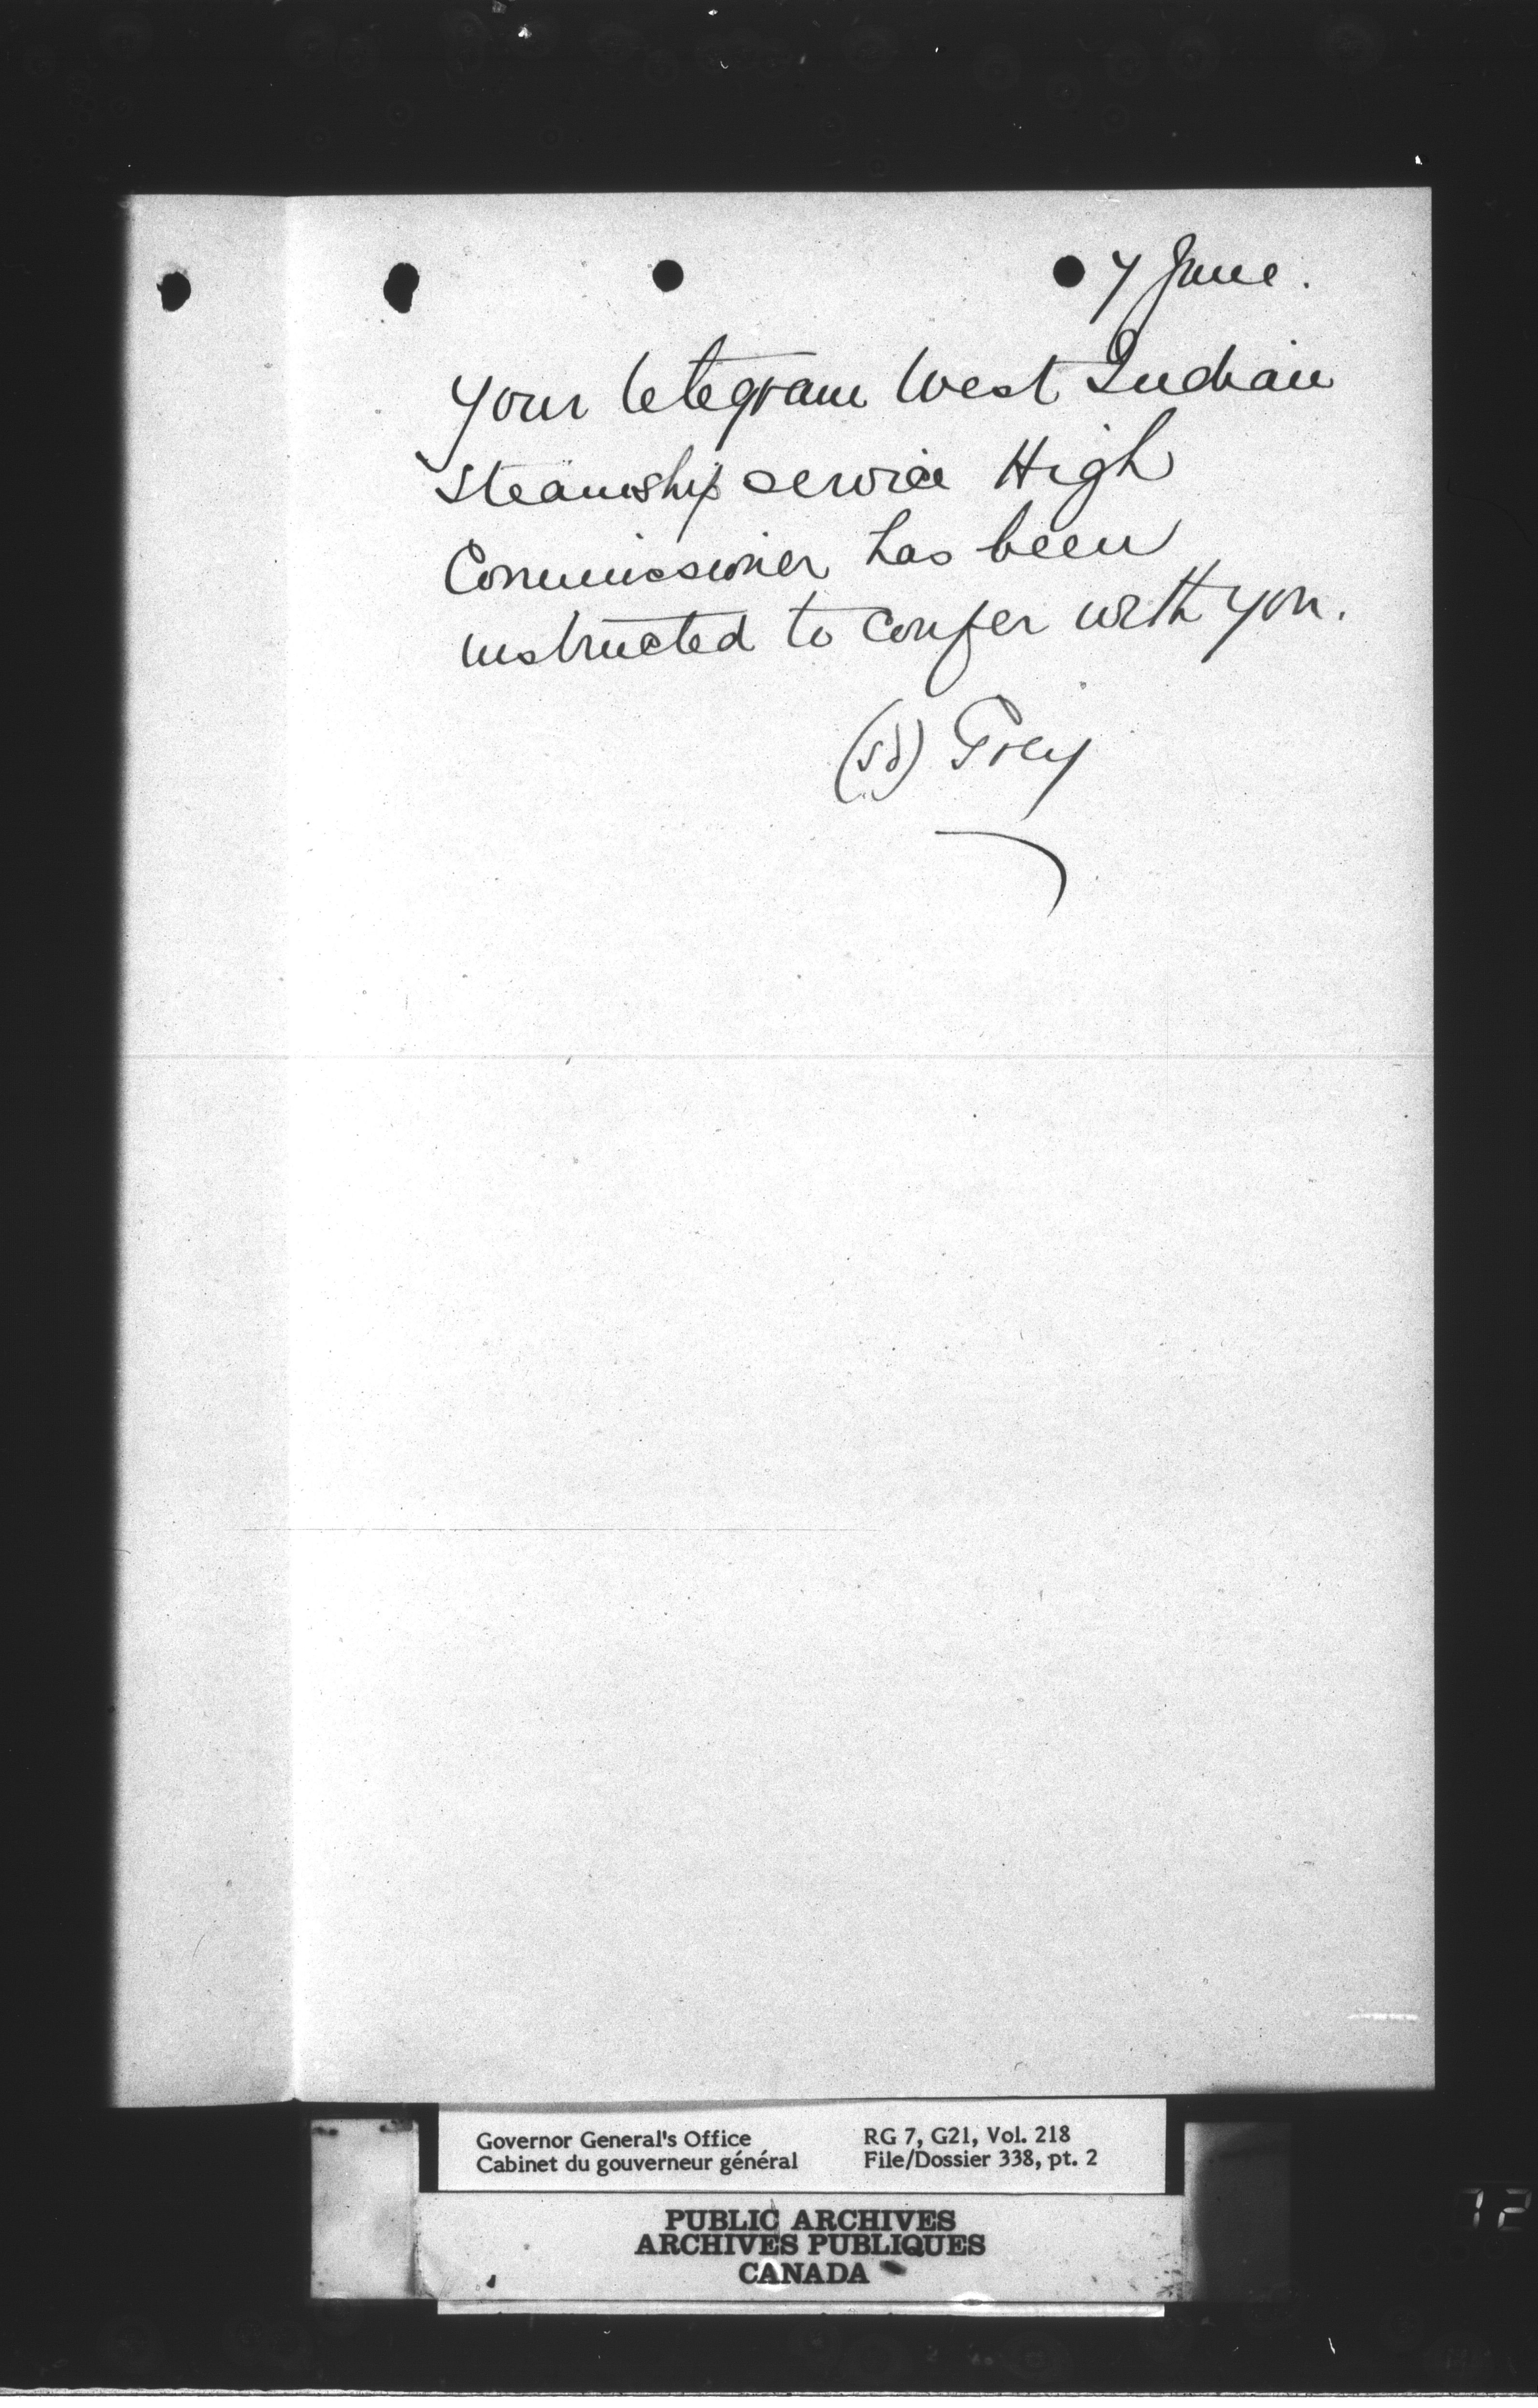 7 June.
Your telegram West Indian
Steamship service High
Commissioner has been
instructed to confer with you.
(sd) Grey
Governor General's Office
Cabinet du gouverneur général
RG 7, G21, Vol. 218
File/Dossier 338, pt. 2
PUBLIC ARCHIVES
ARCHIVES PUBLIQUES
CANADA
72